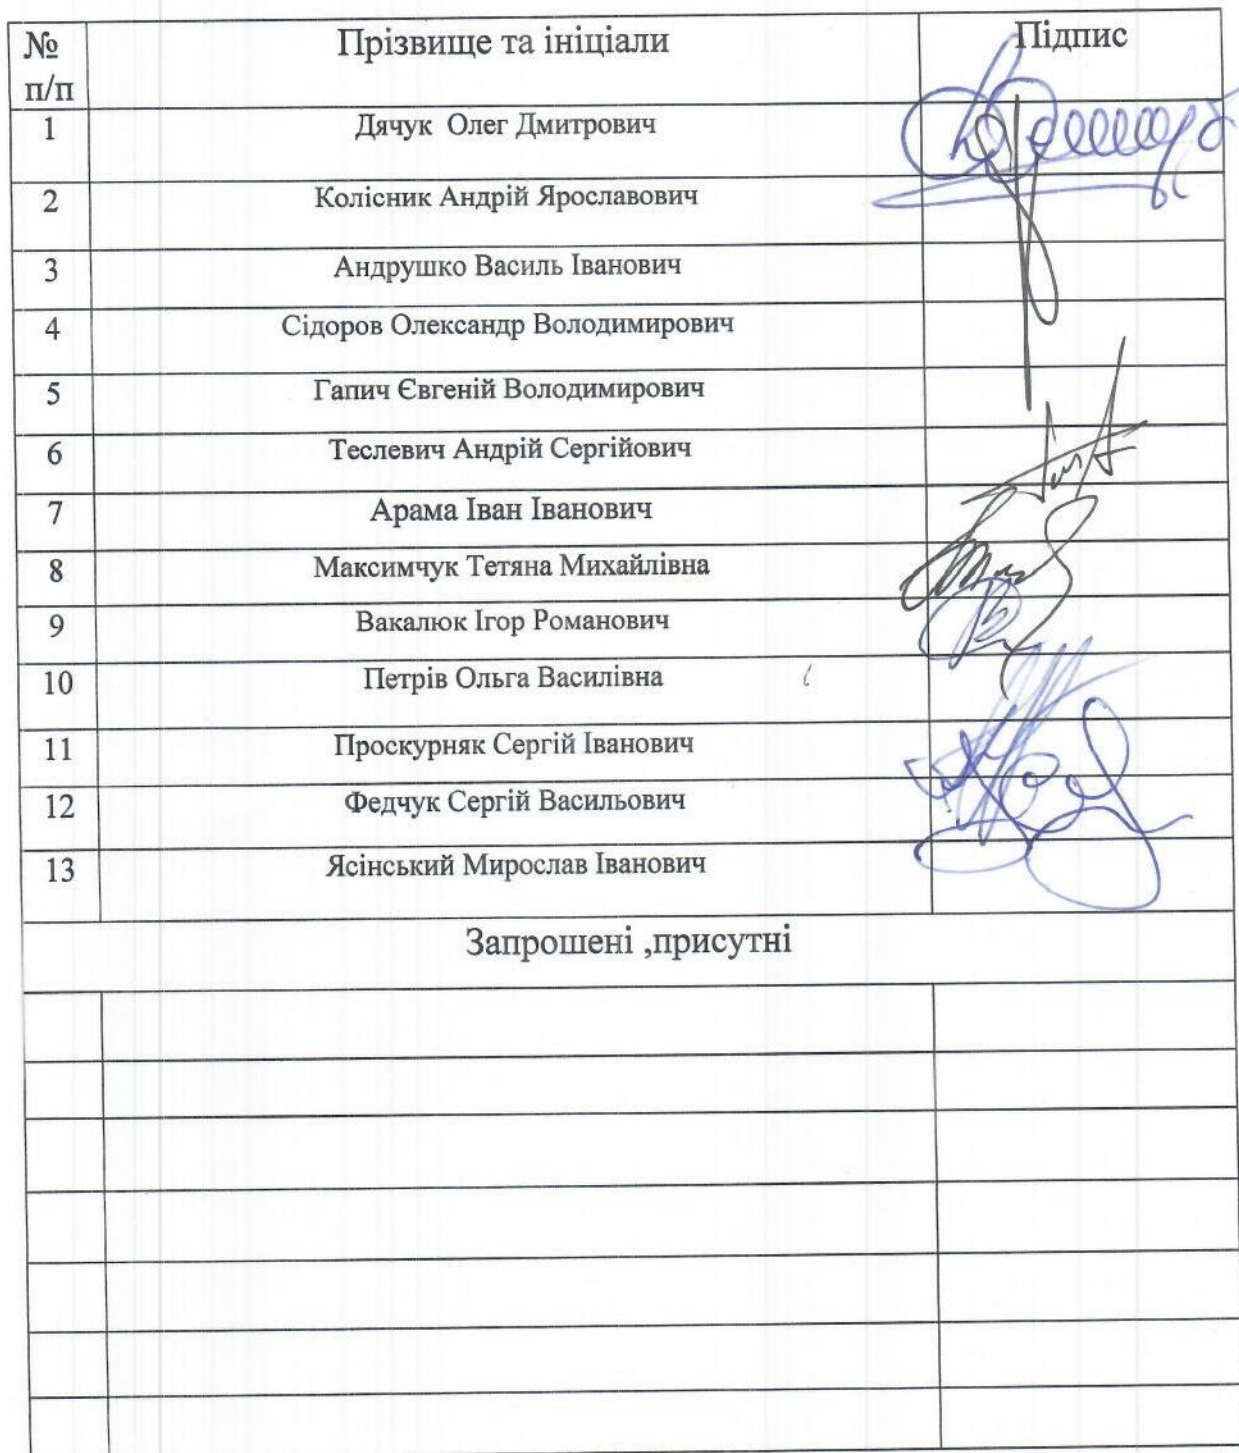 № Прізвище та ініціали Підпис
п/п
1 Дячук Олег Дмитрович
2 Колісник Андрій Ярославович
3 Андрушко Василь Іванович
4 Сідоров Олександр Володимирович
5 Гапич Євгеній Володимирович
6 Теслевич Андрій Сергійович
7 Арама Іван Іванович
8 Максимчук Тетяна Михайлівна
9 Вакалюк Ігор Романович
10 Петрів Ольга Василівна
11 Проскурняк Сергій Іванович
12 Федчук Сергій Васильович
13 Ясінський Мирослав Іванович
Запрошені ,присутні